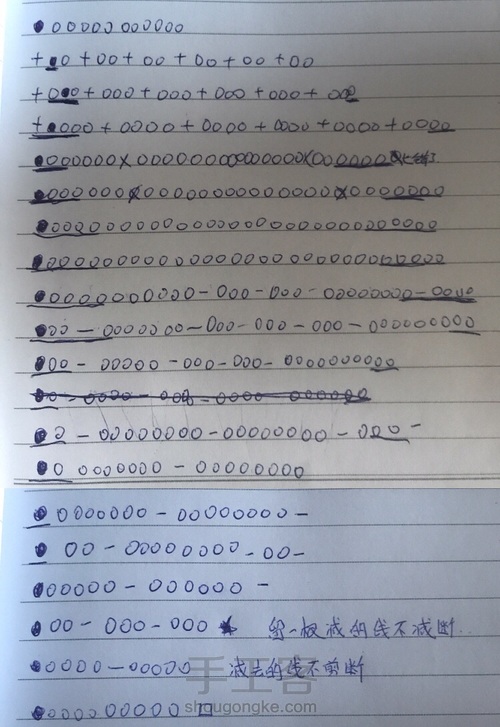 ●00000000000
+●0+00+00+00+00+00
+●00+000+000+000+000+000
+●000+0000+0000+0000+0000+0000
●000000×00000000000000×00000000
●000000×000000000000000×00000000
●0000000000000000000000000000
●0000000000000000000000000000
●0000000000-000-000-00000000-0000
●00-0000000-000-000-000-000000000
●00-00000-000-000-0000000000
●0-00000000-00000000-000-
●0 0000000-00000000
●0000000-00000000-
●00-00000000-00-
●00000-000000-
●00-000-000 留一根减的线不减断
●0000-00000 减去的线不剪断
手工客
●000000000 口
shougongke.com